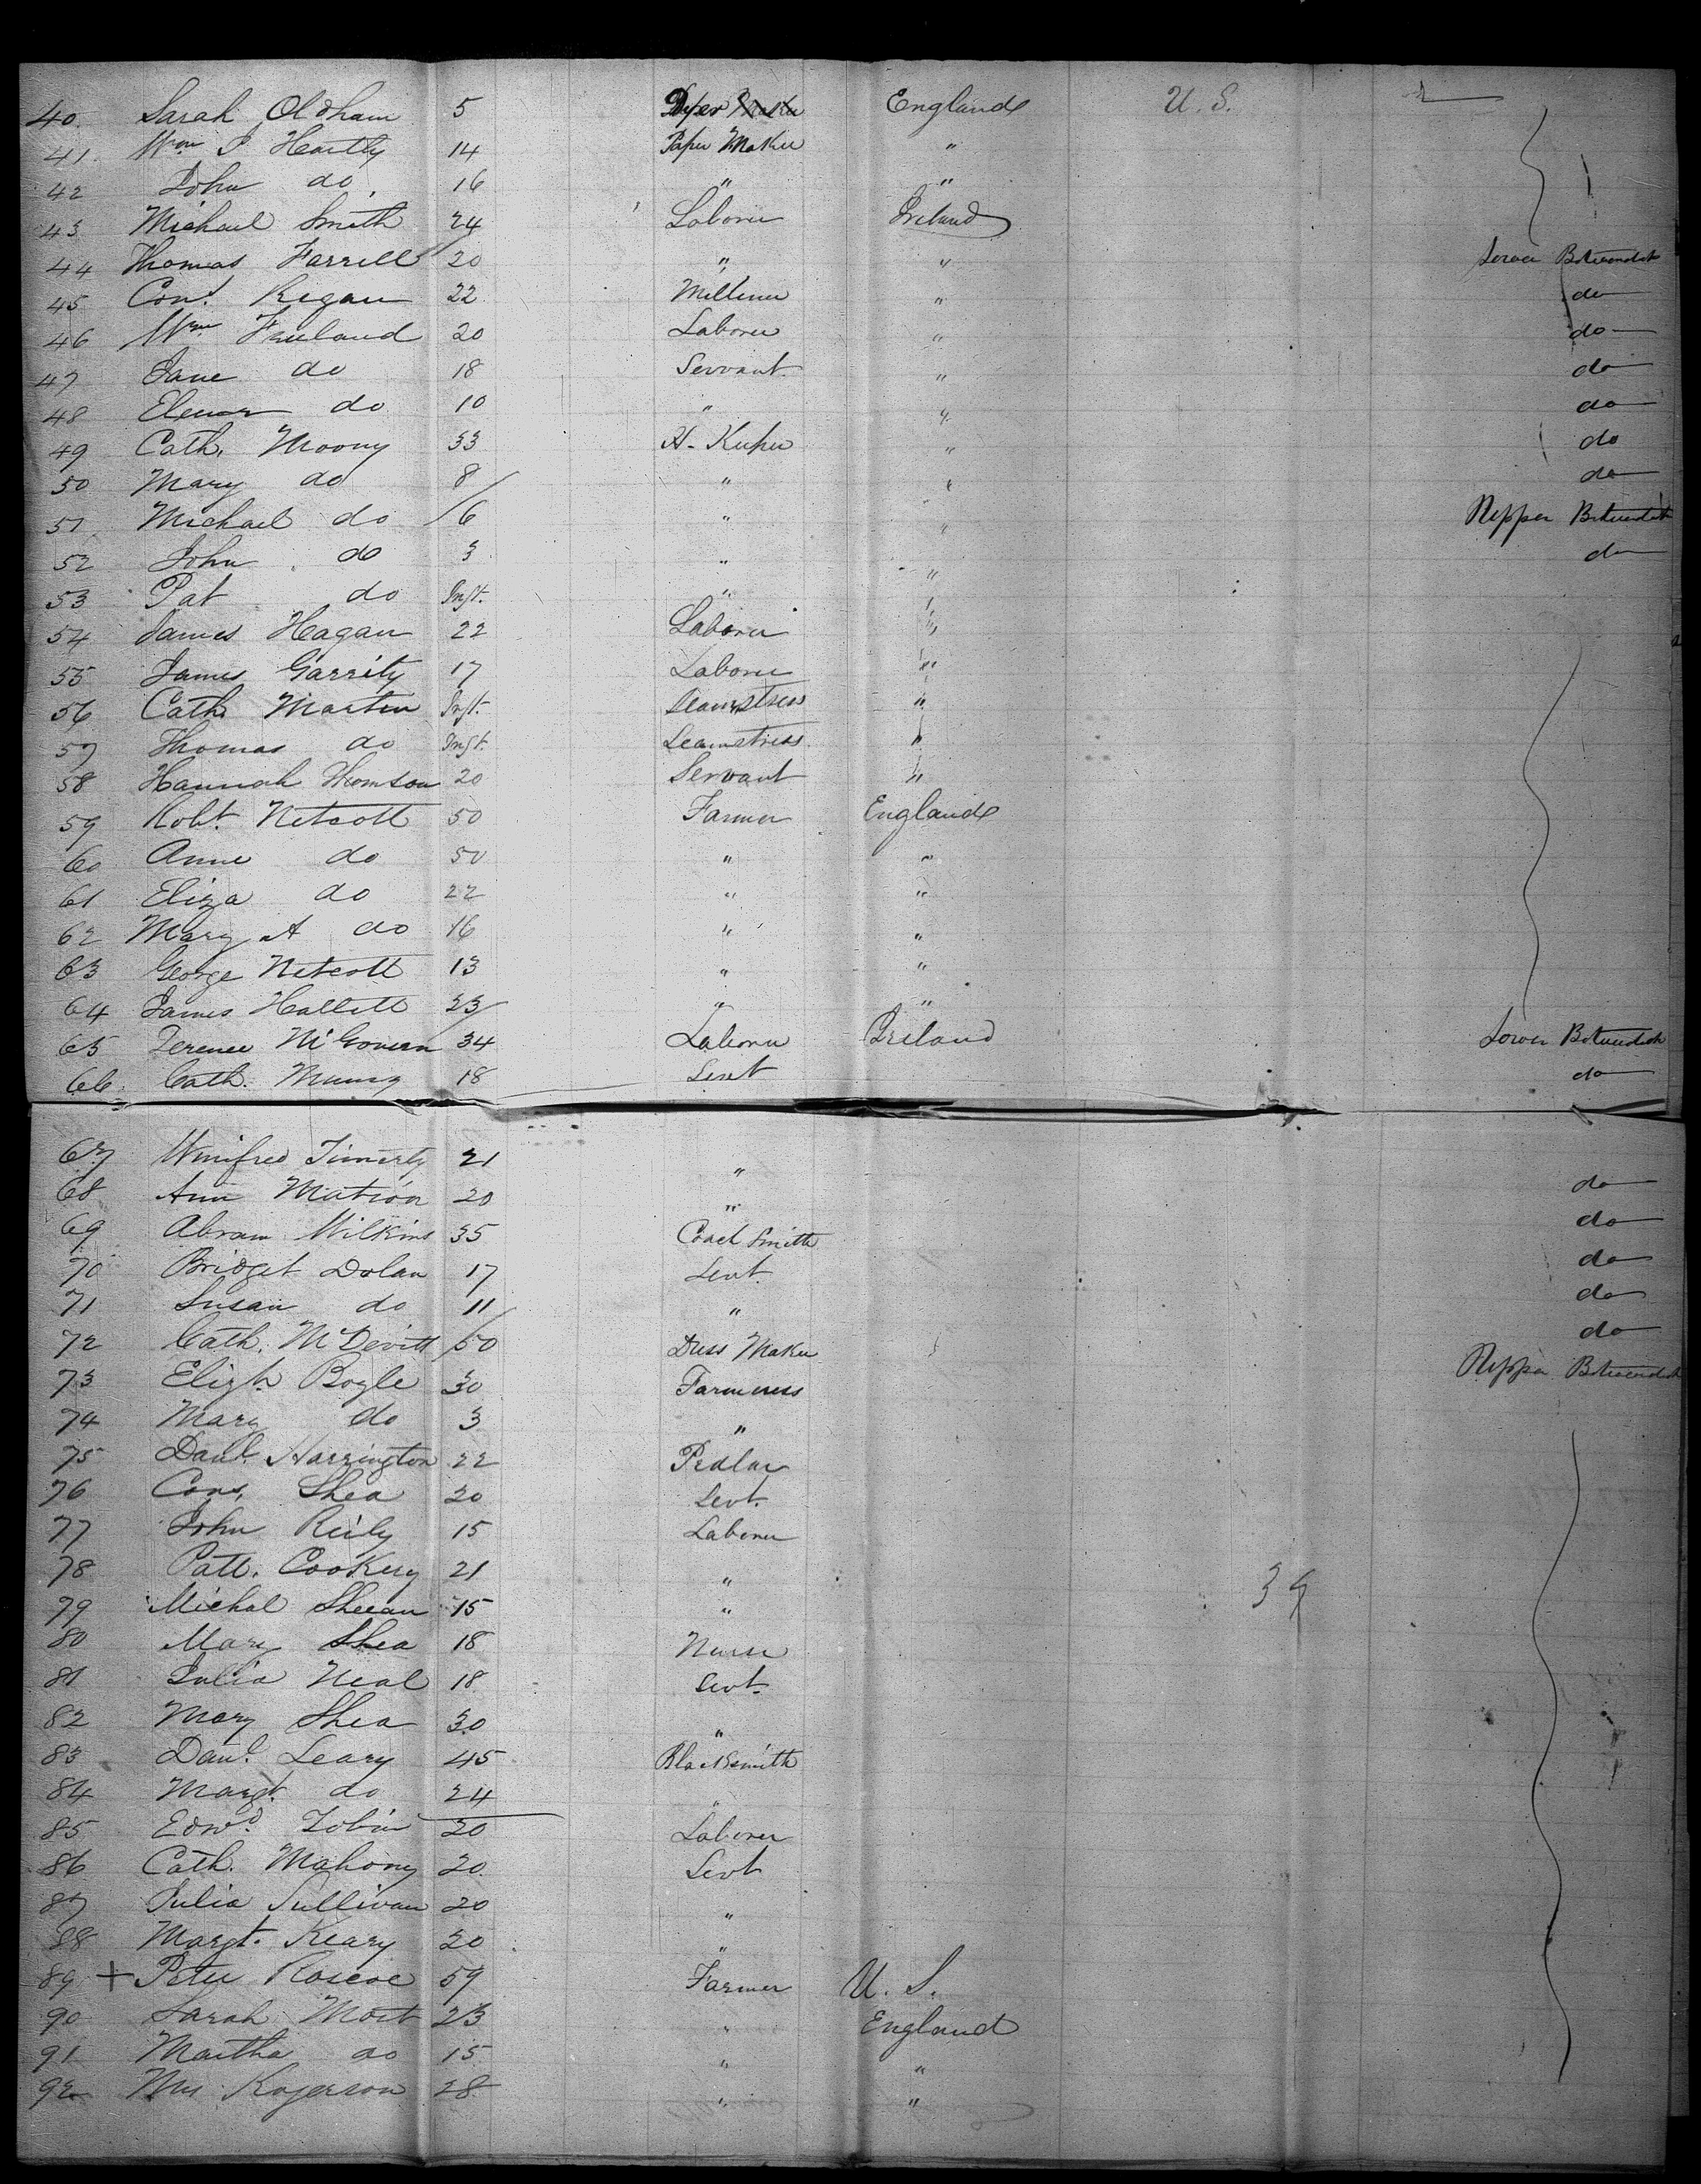 40. Sarah Oldham 5 Dyer England U. S.
41. Wm J Heartly 14 Paper Maker "
42 John do. 16 " "
43 Michael Smith 24 Laborer Ireland
44 Thomas Farrell 20 " " Lower Betwendeck
45 Con. Regan 22 Milliner " do
46 Wm Freeland 20 Laborer " do
47 Jane do 18 Servant " do
48 Elenor do 10 " " do
49 Cath. Moony 33 H. Keeper " do
50 Mary do 8 " " do
51 Michael do 6 " " Upper Betwendeck
52 John do 3 " " do
53 Pat do Inft. " "
54 James Hagan 22 Laborer "
55 James Garrity 17 Laborer "
56 Cath. Martin Inft. Seamstress "
57 Thomas do Inft. Seamstress "
58 Hannah Thomson 20 Servant "
59 Robt. Netcott 50 Farmer England
60 Anne do 50 " "
61 Eliza do 22 " "
62 Mary A do 16 " "
63 George Netcott 13 " "
64 James Hallett 23 " "
65 Terence McGovern 34 Laborer Ireland Lower Betwendeck
66. Cath. 18 Servt do
67 Winifred 21 "
68 Ann 20 " do
69 Abram Wilkins 35 Coach Smith do
70 Bridget Dolan 17 Servt. do
71 Susan do 11 " do
72 Cath. McDevitt 50 Dress Maker do
73 Elizh. Bogle 30 Upper Betwendeck
74 Mary do 3 "
75 Danl. Harrington 22 Pedlar
76 Cons. Shea 20 Servt.
77 John Reily 15 Laborer
78 Patt. Cookery 21 "
79 Michal Sheean 15 "
80 Mary Shea 18 Nurse
81 Julia Neal 18 Servt.
82 Mary Shea 30 "
83 Danl. Leary 45 Blacksmith
84 Margt. do 24 "
85 Edwd. Tobin 20 Laborer
86 Cath. Mahony 20 Servt
87 Julia Sullivan 20 "
88 Margt. Keary 20 "
89 + Peter Roscoe 59 Farmer U. S.
90 Sarah 23 " England
91 Martha do 15 " "
92 Mrs Rogerson 28 " "